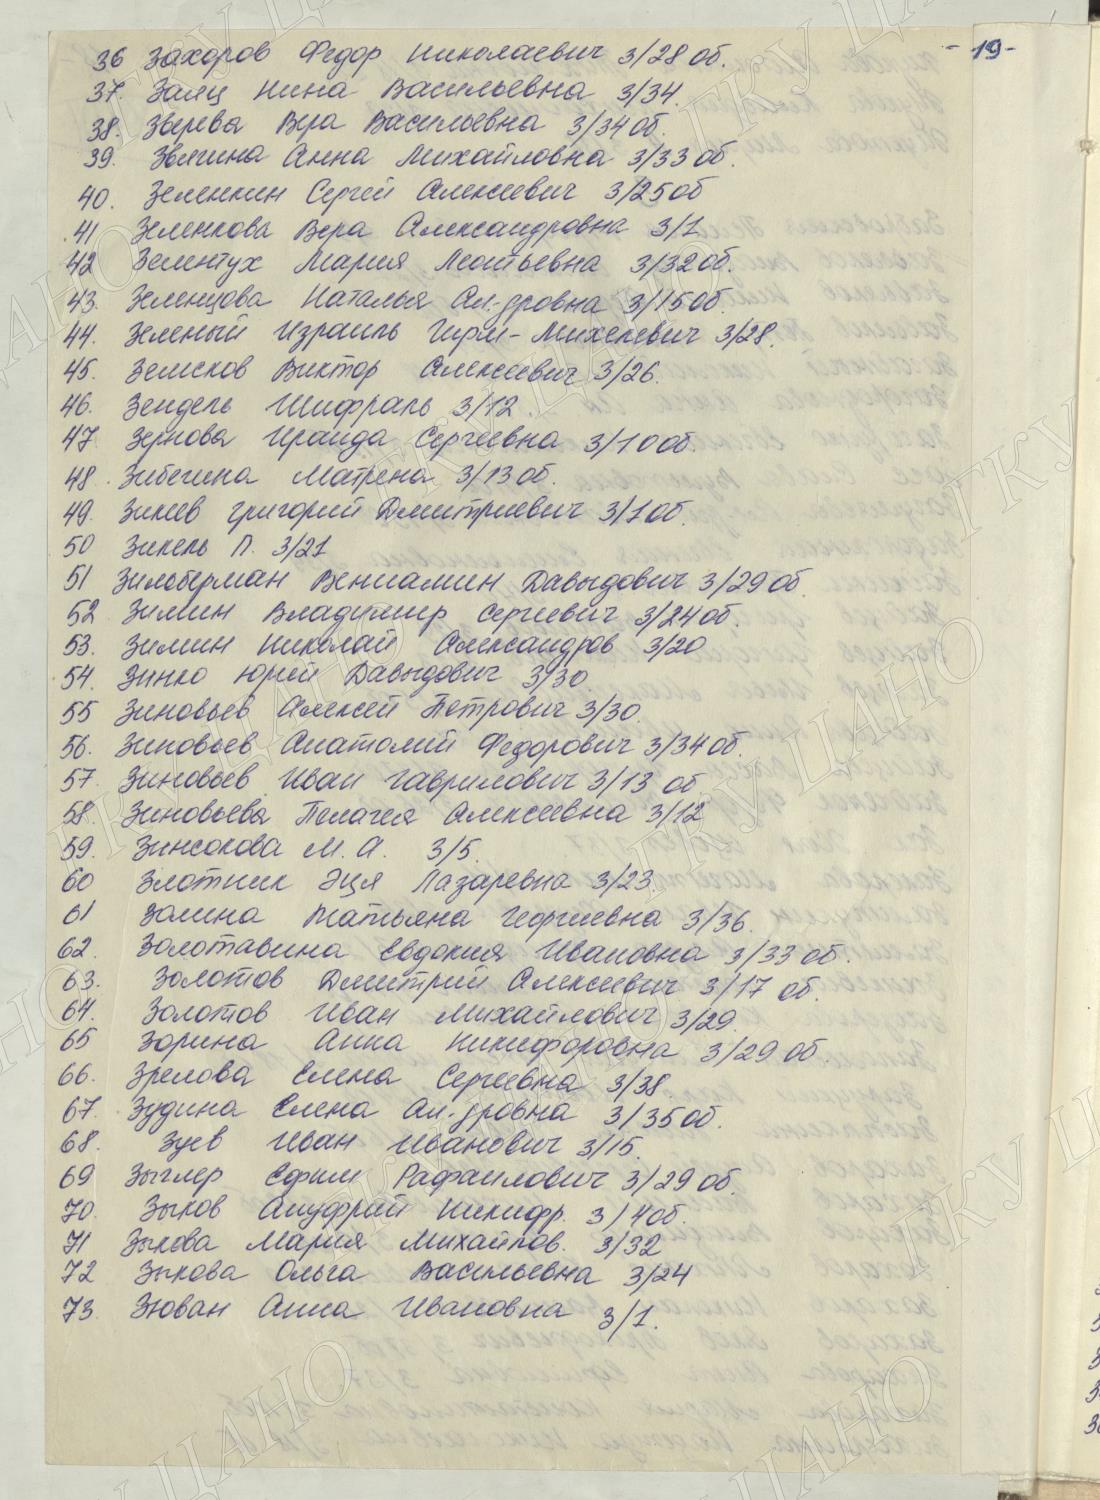 - 19 -
36 Захоров Федор Николаевич 3/28 об.
37. Заяц Нина Васильевна 3/34.
38. Зверева Вера Васильевна 3/34 об.
39. Звягина Анна Михайловна 3/33 об.
40. Зеленкин Сергей Алексеевич 3/25 об
41 Зеленкова Вера Александровна 3/1
42 Зелентух Мария Леонтьевна 3/32 об.
43. Зеленцова Наталья Ал-дровна 3/15 об.
44. Зеленый Израиль Гирш-Михелевич 3/28.
45. Земсков Виктор Алексеевич 3/26.
46. Зендель Шифраль 3/12
47 Зернова Ираида Сергеевна 3/10 об.
48 Зибегина Матрена 3/13 об.
49. Зикеев Григорий Дмитриевич 3/1 об.
50 Зикель П. 3/21
51 Зильберман Вениамин Давыдович 3/29 об.
52 Зимин Владимир Сергеевич 3/24 об.
53. Зимин Николай Александров 3/20
54. Зинко Юрий Давыдович 3/30
55 Зиновьев Алексей Петрович 3/30
56. Зиновьев Анатолий Федорович 3/34 об.
57. Зиновьев Иван Гаврилович 3/13 об
58. Зиновьева Пелагея Алексеевна 3/12
59. Зинсокова М. А. 3/5.
60 Злотник Эця Лазаревна 3/23.
61 Золина Татьяна Георгиевна 3/36.
62. Золотавина Евдокия Ивановна 3/33 об.
63. Золотов Дмитрий Алексеевич 3/17 об.
64. Золотов Иван Михайлович 3/29.
65 Зорина Анна Никифоровна 3/29 об.
66. Зрелова Елена Сергеевна 3/38.
67. Зудина Елена Ал-дровна 3/35 об.
68. Зуев Иван Иванович 3/15.
69 Зыглер Ефим Рафаилович 3/29 об.
70. Зыков Ануфрий Никифр. 3/4 об.
71 Зыкова Мария Михайлов. 3/32
72 Зыкова Ольга Васильевна 3/24
73. Зюван Анна Ивановна 3/1.